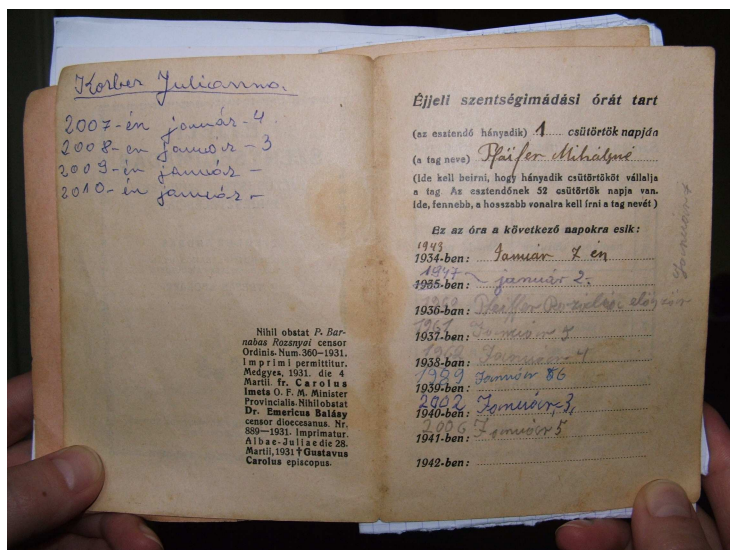 Korber Julianna.
2007-én január - 4
2008-én január - 3
2009-én január -
2010-én január -
Nihil obstat P. Bar-
nabas Rozsnyai censor
Ordinis. Num. 360—1931.
Imprimi permittitur.
Medgyes, 1931. die 4
Martii. fr. Carolus
Imets O. F. M. Minister
Provincialis. Nihil obstat
Dr. Emericus Balásy
censor dioecesanus. Nr.
889—1931. Imprimatur.
Albae-Juliae die 28.
Martii, 1931 † Gustavus
Carolus episcopus.
Éjjeli szentségimádási órát tart
(az esztendő hányadik) 1 csütörtök napján
(a tag neve) Pfáifer Mihályné
(Ide kell beirni, hogy hányadik csütörtököt vállalja
a tag. Az esztendőnek 52 csütörtök napja van.
Ide, fennebb, a hosszabb vonalra kell írni a tag nevét)
Ez az óra a következő napokra esik:
1943
1934-ben: Január 7 én
1947
1935-ben: január 2-
1936-ban: Pfeiffer
1961
1937-ben: Január 5
1938-ban: Január 4
1939-ben: Január
2002
1940-ben: Január, 3,
2006
1941-ben: Január 5
1942-ben: